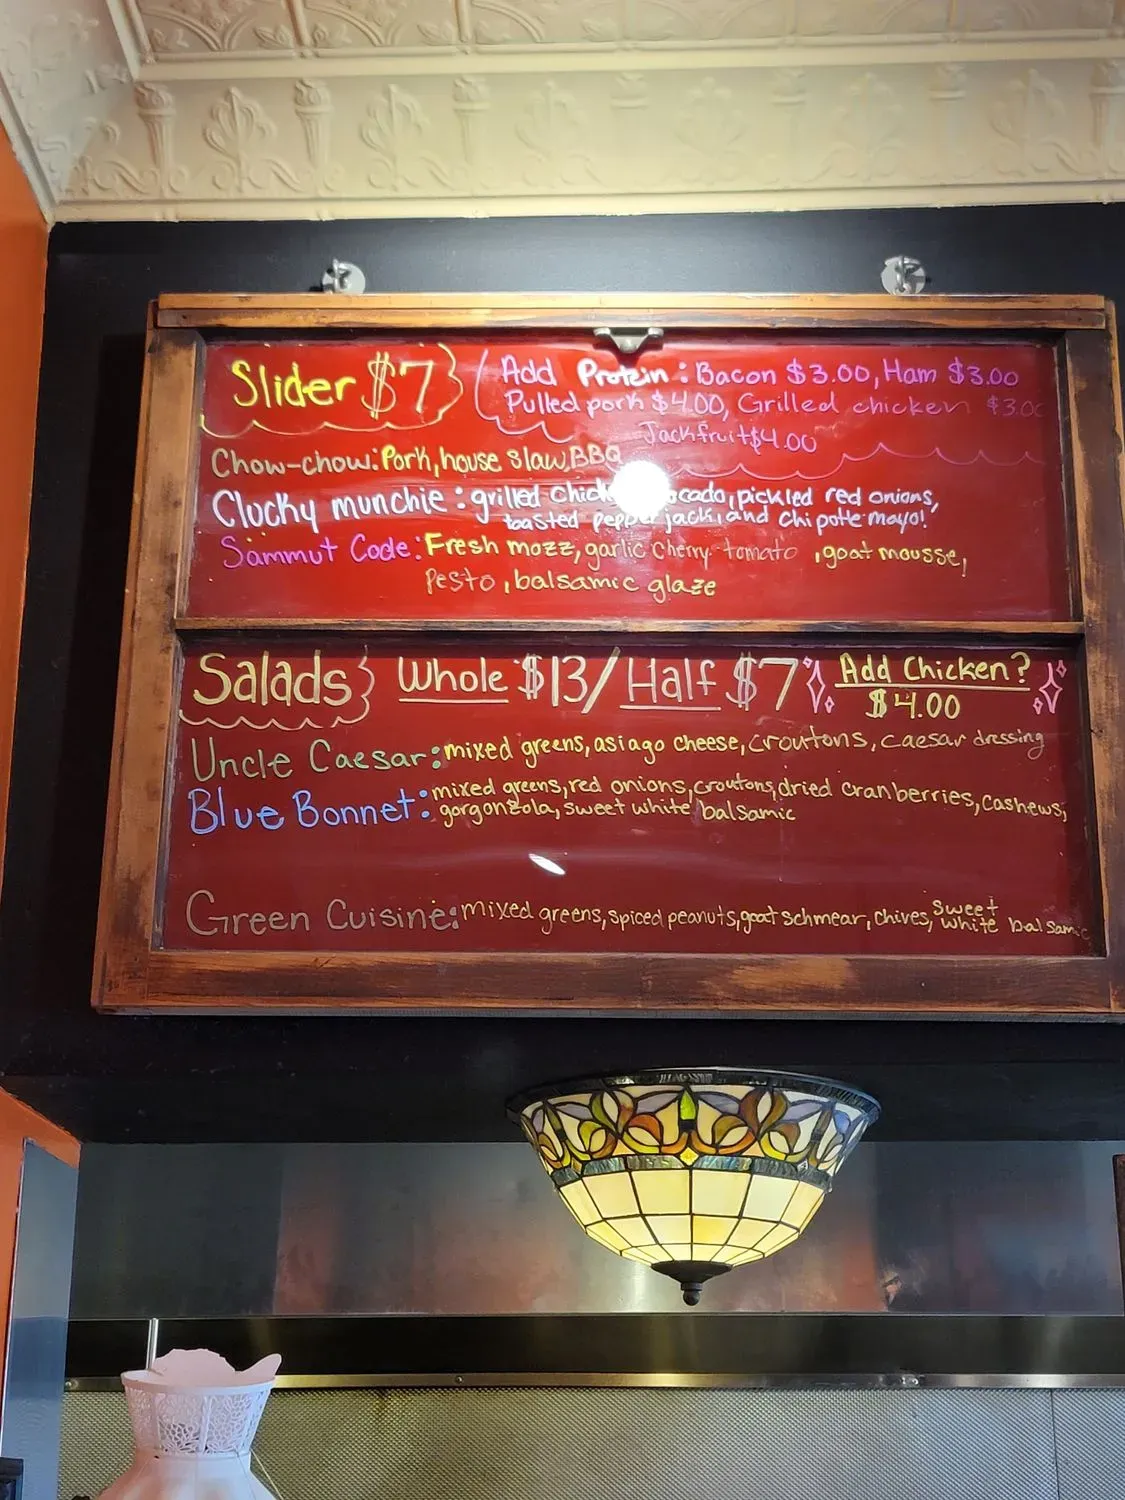 Slider $7
Add Protein: Bacon $3.00, Ham $3.00
Pulled pork $4.00, Grilled chicken $3.00
Jackfruit $4.00
Chow-chow: Pork, house slaw, BBQ
Clucky munchie: grilled pickled red onions,
toasted pepper jack, and chipotle mayo!
Sammut Code: Fresh mozz, garlic cherry tomato, goat mousse,
Pesto, balsamic glaze
Salads Whole $13/Half $7 Add Chicken?
$4.00
Uncle Caesar: mixed greens, asiago cheese, croutons, caesar dressing
Blue Bonnet: mixed greens, red onions, croutons, dried cranberries, cashews,
gorgonzola, sweet white balsamic
Green Cuisine: mixed greens, spiced peanuts, goat schmear, chives, sweet
white balsamic